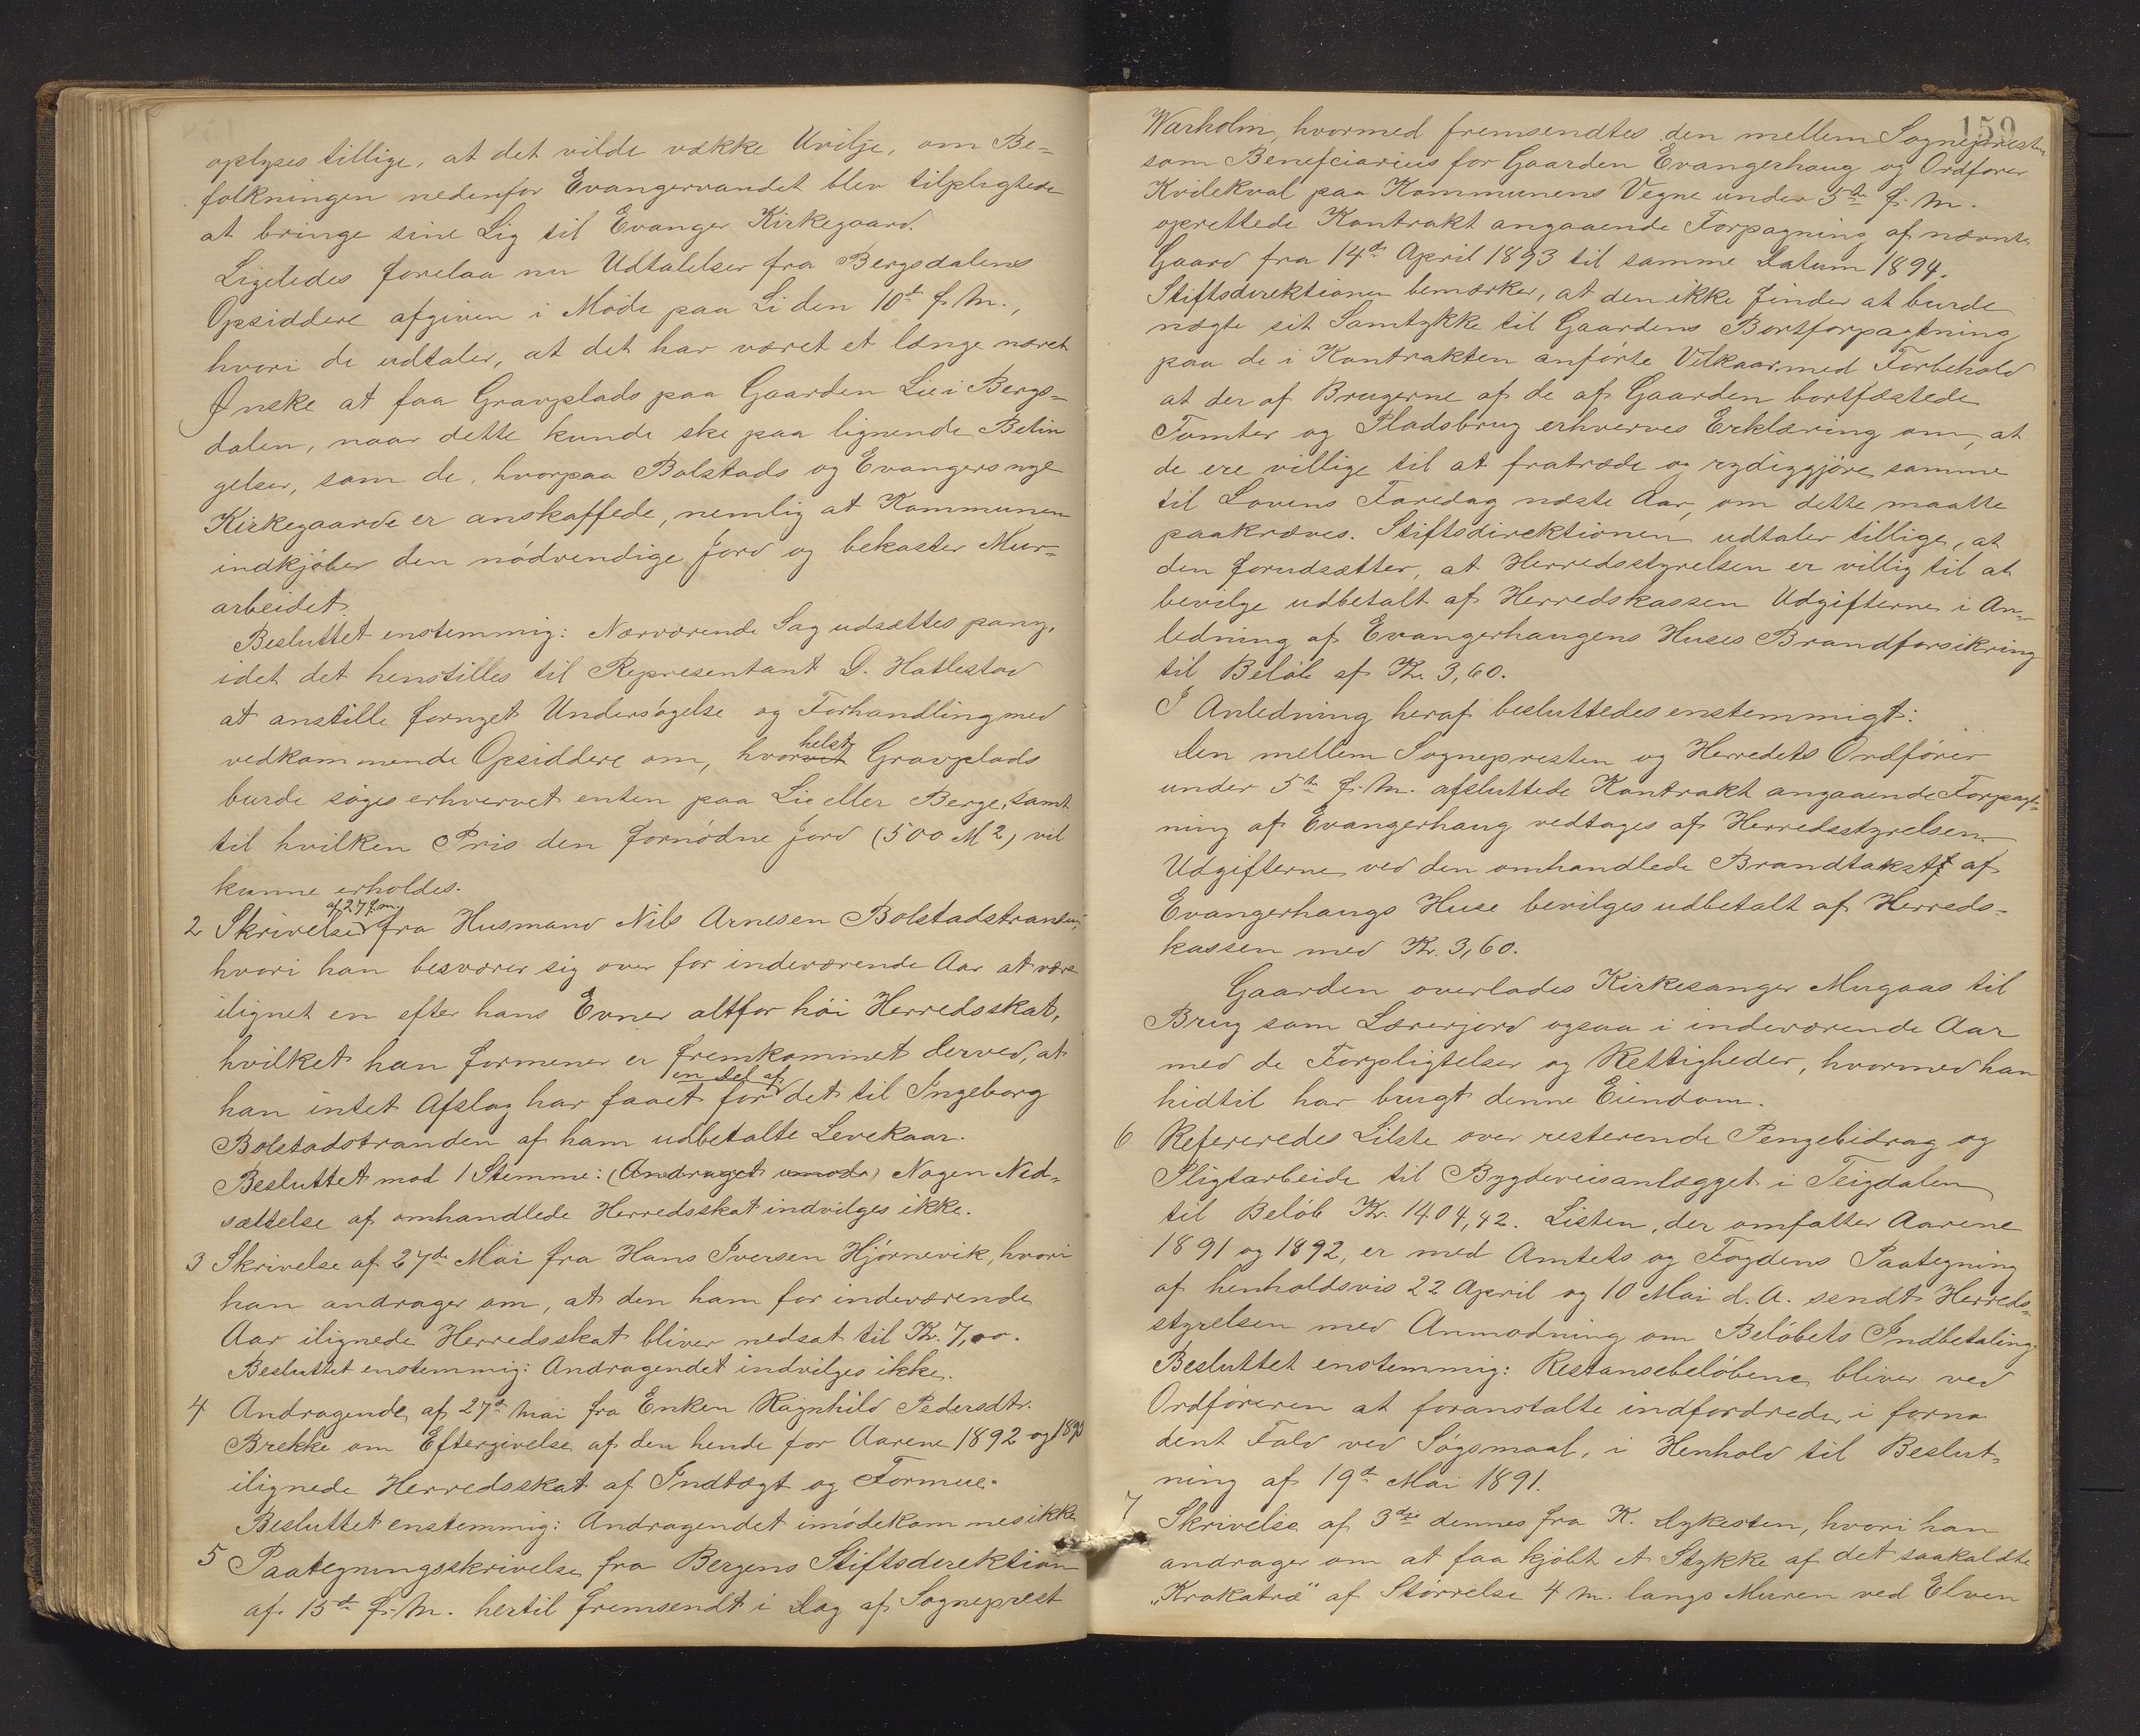 oplyses tillige, at det vilde vække Uvilje, om Be-
folkningen nedenfor Evangervandet blev tilpligtede
at bringe sine Lig til Evanger Kirkegaard.
Ligeledes forelaa nu Udtalelser fra Bergsdalens
Opsiddere afgiven i Møde paa Li den 10de f. M.,
hvori de udtaler, at det har været et længe næret
Ønske at faa Gravplads paa Gaarden Lie i Bergs-
dalen, naar dette kunde ske paa lignende Betin
gelser, som de, hvorpaa Bolstads og Evangers nye
Kirkegaarde er anskaffede, nemlig at Kommunen
indkjøber den nødvendige Jord og bekoster Mur-
arbeidet.
Besluttet enstemmig: Nærværende Sag udsættes paany,
idet det henstilles til Representant D. Hatlestad
at anstille fornyet Undersøgelse og Forhandling med
vedkommende Opsiddere om, hvor helst Gravplads
burde søges erhvervet enten paa Lie eller Berge, samt
til hvilken Pris den fornødne Jord (500 M 2) vil
kunne erholdes.
2 Skrivelse af 27 f.m. fra Husmand Nils Arnesen Bolstadstranden,
hvori han besværer sig over for indeværende Aar at være
ilignet en efter hans Evner altfor høi Herredsskat,
hvilket han formener er fremkommet derved, at
han intet Afslag har faaet for en del af det til Ingeborg
Bolstadstranden af ham udbetalte Levekaar.
Besluttet mod 1 Stemme: (Andraget imøde) Nogen Ned-
sættelse af omhandlede Herredsskat indvilges ikke.
3 Skrivelse af 27de Mai fra Hans Iversen Hjørnevik, hvori
han andrager om, at den ham for indeværende
Aar ilignede Herredsskat bliver nedsat til Kr. 7,00.
Besluttet enstemmig: Andragendet indvilges ikke.
4 Andragende af 27de Mai fra Enken Ragnhild Pedersdtr.
Brekke om Eftergivelse af den hende for Aarene 1892 og 1893
ilignede Herredsskat af Indtægt og Formue.
Besluttet enstemmig: Andragendet imødekommes ikke
5 Paategningsskrivelse fra Bergens Stiftsdirektion
af 15de f. M. hertil fremsendt i Dag af Sogneprest
159
Warholm, hvormed fremsendtes den mellem Sognepresten
som Beneficiarius for Gaarden Evangerhaug og Ordfører
Kvilekval paa Kommunens Vegne under 5te f. M.
oprettede Kontrakt angaaende Forpagning af nævnte
Gaard fra 14de April 1893 til samme Datum 1894.
Stiftsdirektionen bemærker, at den ikke finder at burde
nægte sit Samtykke til Gaardens Bortforpagtning
paa de i Kontrakten anførte Vilkaar med Forbehold
at der af Brugerne af de af Gaarden bortfæstede
Tomter og Pladsbrug erhverves Erklæring om, at
de ere villige til at fratræde og rydiggjøre samme
til Lovens Faredag næste Aar, om dette maatte
paakræves. Stiftsdirektionen udtaler tillige, at
den forudsætter, at Herredsstyrelsen er villig til at
bevilge udbetalt af Herredskassen Udgifterne i An-
ledning af Evangerhaugens Huses Brandforsikring
til Beløb af Kr. 3,60.
I Anledning heraf besluttedes enstemmigt:
Den mellem Sognepresten og Herredets Ordfører
under 5te f. M. afsluttede Kontrakt angaaende Forpagt-
ning af Evangerhaug vedtages af Herredsstyrelsen.
Udgifterne ved den omhandlede Brandtakst af
Evangerhaugs Huse bevilges udbetalt af Herreds-
kassen med Kr. 3,60.
Gaarden overlades Kirkesanger Mugaas til
Brug som Lærerjord ogsaa i indeværende Aar
med de Forpligtelser og Rettigheder, hvormed han
hidtil har brugt denne Eiendom.
6 Refereredes Liste over resterende Pengebidrag og
Pligtarbeide til Bygdeveisanlægget i Teigdalen
til Beløb Kr. 1404,42. Listen, der omfatter Aarene
1891 og 1892, er med Amtets og Fogdens Paategning
af henholdsvis 22 April og 10 Mai d. A. sendt Herreds-
styrelsen med Anmodning om Beløbets Indbetaling.
Besluttet enstemmig: Restansebeløbene bliver ved
Ordføreren at foranstalte indfordrede, i forno
dent Fald ved Søgsmaal, i Henhold til Beslut-
ning af 19de Mai 1891.
7 Skrivelse af 3die dennes fra K. Dykesten, hvori han
andrager om at faa kjøbt et Stykke af det saakaldte
"Krakatræ" af Størrelse 4 m. langs Muren ved Elven